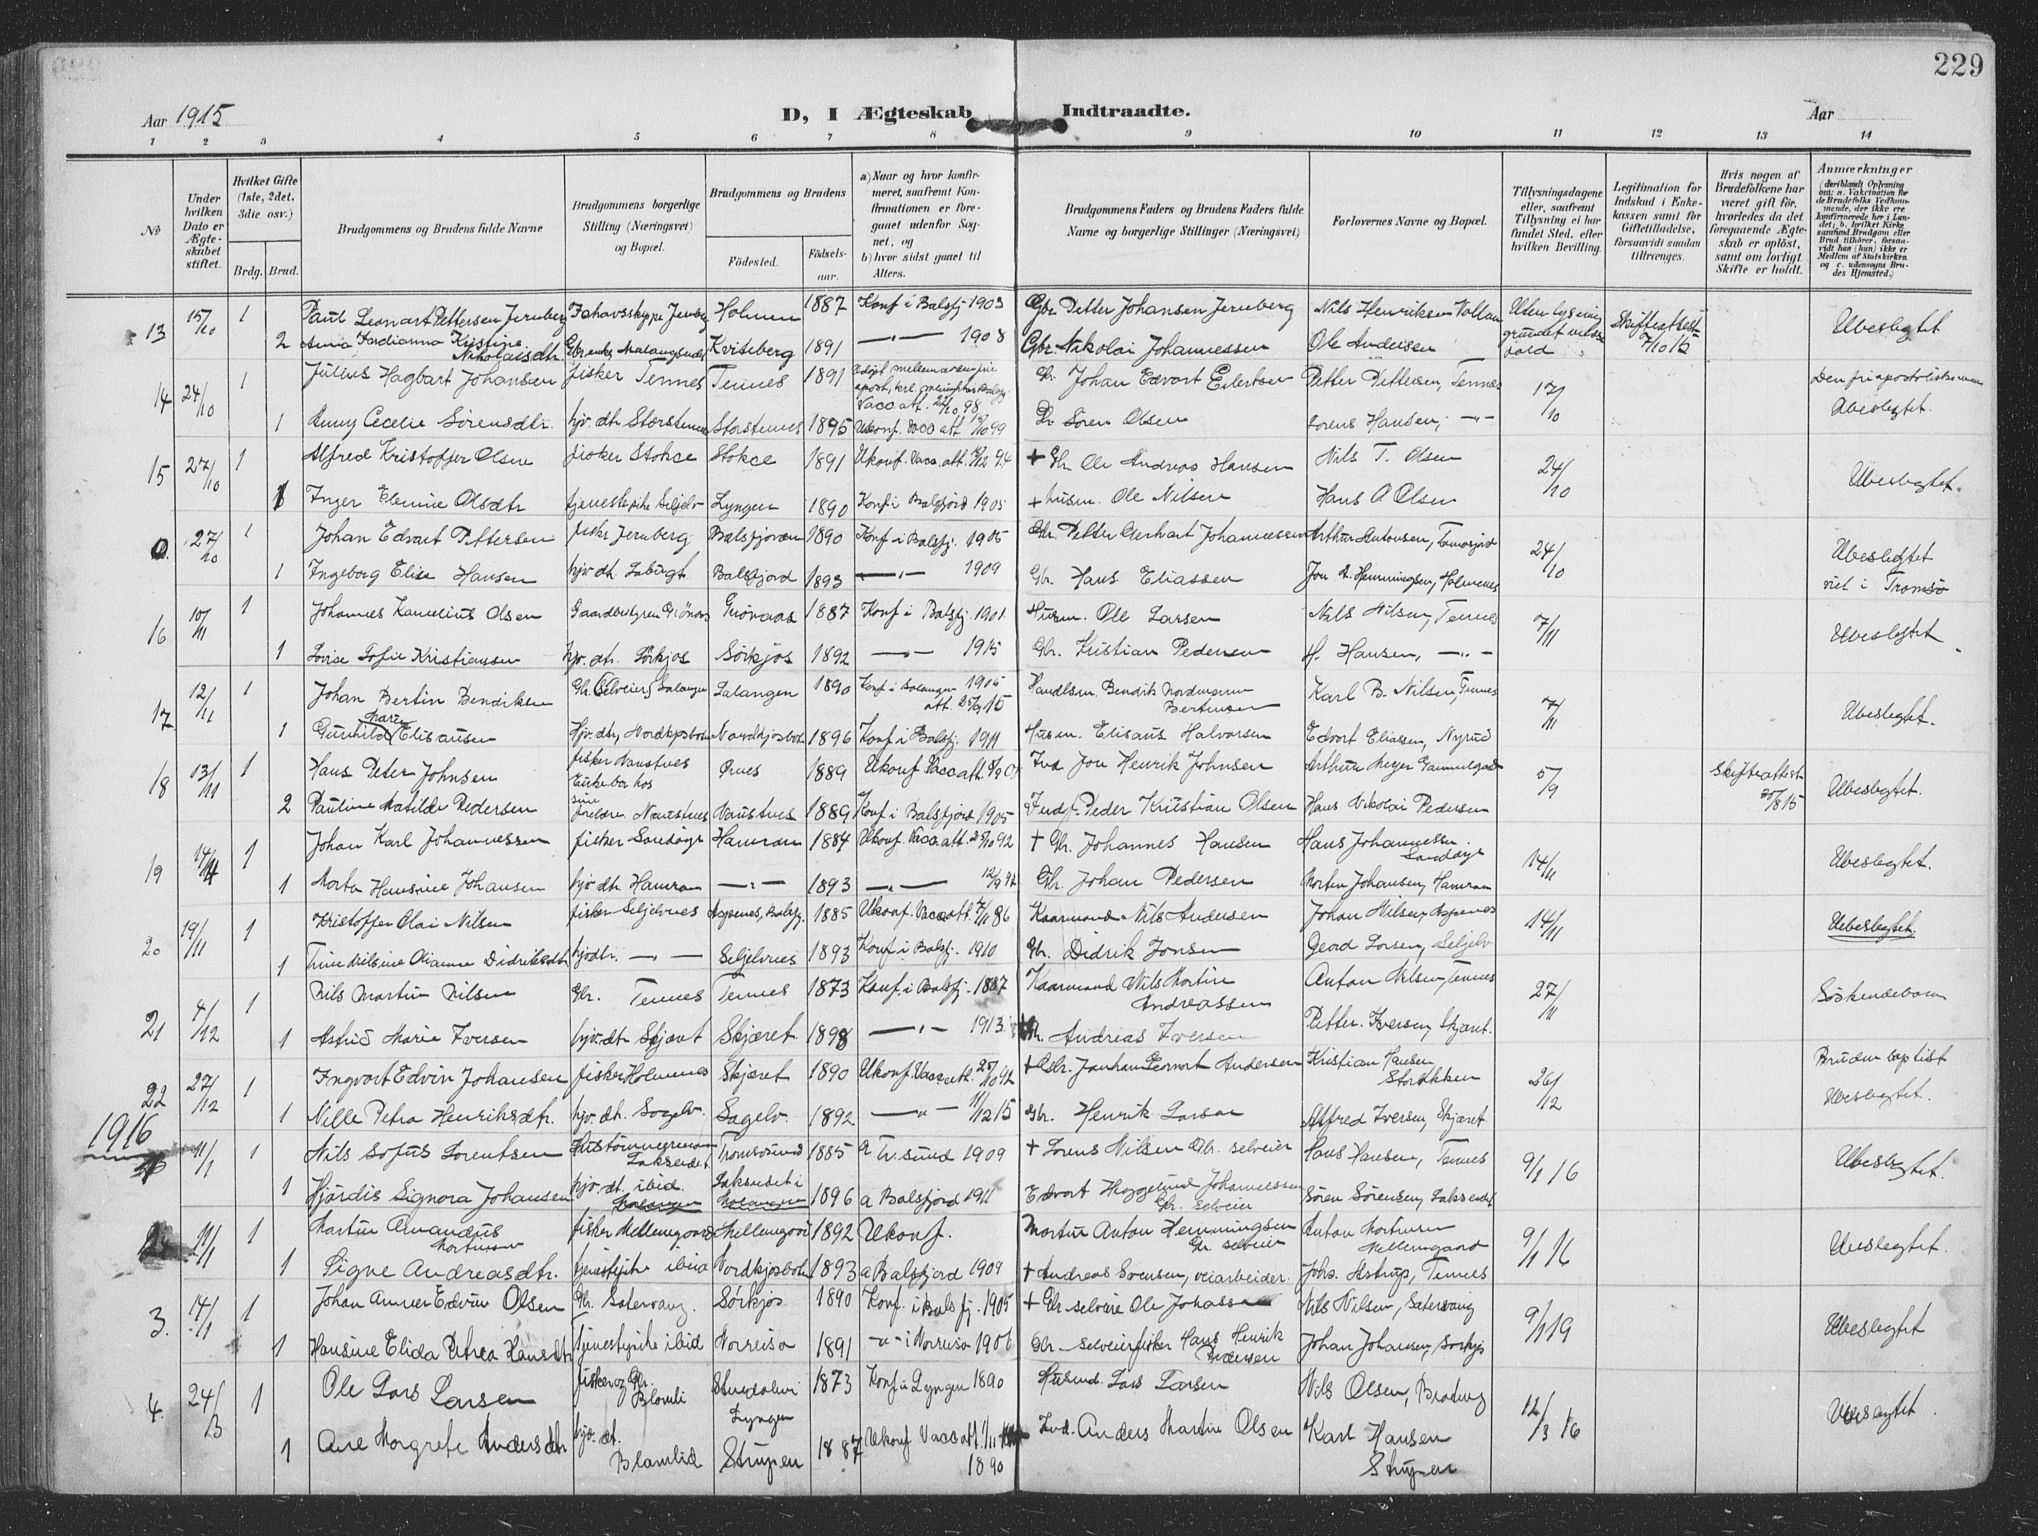 229
Aar 1915
D, I Ægteskab Indtraadte.
Aar
1 2 3 4 5 6 7 8 9 10 11 12 13 14
No
Under hvilken Dato er Ægteskabet stiftet.
Hvilket Gifte (1ste, 2det, 3die osv.)
Brdg. Brud.
Brudgommens og Brudens fulde Navne
Brudgommens borgerlige Stilling (Næringsvei) og Bopæl.
Brudgommens og Brudens
Födested. Födselsaar.
a) Naar og hvor konfirmeret, saafremt Konfirmationen er foregaaet udenfor Sognet, og
b) hvor sidst gaaet til Alters.
Brudgommens Faders og Brudens Faders fulde Navne og borgerlige Stillinger (Næringsvei)
Forlovernes Navne og Bopæl.
Tillysningsdagene eller, saafremt Tillysning ei har fundet Sted, efter hvilken Bevilling.
Legitimation for Indskud i Enkekassen samt for Giftetilladelse, forsaavidt saadan tiltrænges.
Hvis nogen af Brudefolkene har været gift før, hvorledes da det foregaaende Ægteskab er oplöst, samt om lovligt Skifte er holdt.
Anmærkninger
(deriblandt Oplysning om: a. Vakcination for de Brudefolks Vedkommende, der ikke ere konfirmerede her i Landet; b. hvilket Kirkesamfund Brudgom eller Brud tilhörer, forsaavidt han (hun) ikke er Medlem af Statskirken og c. udensogns Brudes Hjemsted.)
13 15/10 1 Paul Leonart Pettersen Jernberg Holmen 1887 Konf i Balsfj 1903 Gbr. Petter Johansen Jernberg Nils Henriksen Vollan Uten lysning Skifteattest 7/10 15 Ubeslegtet
2 Kristine Nikolaisdtr. Kviteberg 1891 —„— 1908 Gbr. Nikolai Johannessen Ole Andersen
14 24/10 1 Julius Hagbart Johansen fisker Tennes Tennes 1891 Vacc. att. 98 Gbr. Johan Edvart Eilertsen Petter Pettersen, Tennes 17/10
1 Anny Cecelie Sørensdtr. hjv. dtr. Storstennes Storstennes 1895 Ukonf. Vacc att 99 Gbr Sören Olsen Lorens Hansen, —„— Ubeslegtet.
15 27/10 1 Alfred Kristoffer Olsen fisker Stokce Stokce 1891 Ukonf. Vacc. att. 94 + Gbr. Ole Andreas Hansen Nils T. Olsen 24/10 Ubeslegtet.
1 Inger Elenine Olsdtr tjenestepike Seljelv Lyngen 1890 Konf i Balsfjord 1905 + husm. Ole Nilsen Hans A Olsen
0. 27/10 1 Johan Edvart Pettersen fisker Jernberg Balsfjorden 1890 Konf i Balsfj. 1905 Gbr. Petter Gerhart Johannessen Arthur Antonsen, Tomasjord 24/10 Ubeslegtet
1 Ingeborg Elise Hansen hjv. dt. Balsfjord 1893 —„— 1909 Gbr. Hans Eliassen Jon A. Hemmingsen, Holmenes viet i Tromsø
16 10/11 1 Johannes Kornelius Olsen Gaardbestyrer Grönaas Grönaas 1887 Konf i Balsfj. 1901 Husm. Ole Larsen Nils Nilsen, Tennes 7/11 Ubeslegtet
1 Lovise Sofie Kristiansen hjv. dtr. Sörkjos Sörkjos 1892 —„— 1915 Gbr. Kristian Pedersen H. Hansen, —„—
17 12/11 1 Johan Bertin Bendiksen Gbr. (Selveier) Salangen Salangen 1890 Konf i Salangen 1905 att. 25/9 15 Handlsm. Bendik Nordmann Bertinsen Karl B. Nilsen, Tennes 7/11 Ubeslegtet.
1 Gunhild Marie Elisausen Hjv. dtr, Nordkjosbotn Nordkjosbotn 1896 Konf i Balsfj. 1911 Husm. Elisaus Halvorsen Edvart Eliassen, Nyrud
18 13/11 1 Hans Peter Johnsen fisker Naustnes Örnes 1889 Ukonf Vacc att Ind Jon Henrik Johnsen Arthur Meyer Gammelgaard 5/9 Skifteattest 8 15 Ubeslegtet.
2 Pauline Matilde Pedersen Enke bor hos sine foreldre Naustnes Naustnes 1889 Konf i Balsfjord 1905 Peder Kristian Olsen Hans Nikolai Pedersen
19 14/11 1 Johan Karl Johannessen fisker Sandöyr Hamran 1884 Ukonf. Vacc. att. 92 + Gbr. Johannes Hansen Hans Johannessen Sandöyr 14/11 Ubeslegtet.
1 Marta Hansine Johansen hjv. dtr Hamran —„— 1893 —„— 12/9 Gbr. Johan Pedersen Morten Johansen, Hamran
20 19/11 1 Kristoffer Olai Nilsen fisker Seljelvnes Aspenes, Balsfj. 1885 Ukonf. Vacc att. 86 Kaarmand Nils Andersen Johan Nilsen, Aspenes 14/11 Ubeslegtet.
1 Trine Nilsine Oliamme Didriksdtr hjvdtr. —„— Seljelvnes 1893 Konf i Balsfj. 1910 Gbr. Didrik Jonsen Larsen, Seljelv
21 4/12 1 Nils Martin Nilsen Gbr. Tennes Tennes 1873 Konf. i Balsfj. 1887 Kaarmand Nils Martin Andreassen Anton Nilsen, Tennes 27/11 Söskendebarn
1 Astrid Marie Iversen hjv. dtr Skjæret Skjæret 1898 —„— 1913 Gbr. Andreas Iversen Petter Iversen, Skjæret.
22 27/12 1 Ingvart Edvin Johansen fisker Holmenes Skjæret 1890 Ukonf. Vacc att. 25/10 92 + Gbr. Leonart Andersen Kristian Hansen 26/12 Bruden baptist
1 Nille Petra Henriksdtr. hjv. dt. Sagelv. Sagelv. 1892 —„— 11/12 15 Gbr. Henrik Larsen Alfred Iversen, Skjæret Ubeslegtet.
1916
11/1 1 Nils Sofus Lorentsen Hustömmermann Laksedet Tromsösund 1885 a Tr. sund 1909 + Lorens Nilsen Gbr. selveier Hans Hansen, Tennes 9/1 16 Ubeslegtet.
1 Hjördis Signora Johansen hjv. dt. ibid. Laksedet i Malangen 1896 a Balsfjord 1911 Edvart Hyggelund Johannessen Gbr. selveier Sören Sörensen, Laksedet
11/1 1 Martin Amandus Mortensen fisker Mellemgaard Mellemgaard 1892 Ukonf. Martin Anton Hemmingsen Gbr selveier Anton Mortensen Mellemgaard 9/1 16 Ubeslegtet.
1 Signe Andreasdtr. tjenestepike ibid Nordkjosbotn 1893 a Balsfjord 1909 + Andreas Svensen, veiarbeider. Johs. Astrup, Tennes
3. 14/1 1 Johan Anner Edvin Olsen Gbr. Satervang. Sörkjos 1890 Konf. i Balsfj. 1905 + Gbr selveier Ole Johansen Nils Nilsen, Satervang 9/1 19 Ubeslegtet
1 Hansine Elida Petrea Hansdtr tjenestepike ibid Norreisa 1891 —„— i Norreisa 1906 Gbr - selveierfisker Hans Henrik Andersen Johan Johansen, Sörkjos
4. 24/3 1 Ole Lars Larsen fisker og Gbr. Blomli Lyngen 1873 Konf i Lyngen 1890 Husmd. Lars Larsen Nils Olsen, 12/3 16 Ubeslegtet.
1 Ane Margrete Andersdtr hjv. dt. Blomlid Strupen 1887 Ukonf Vacc att. 1890 Ind. Anders Martin Olsen Karl Hansen Strupen